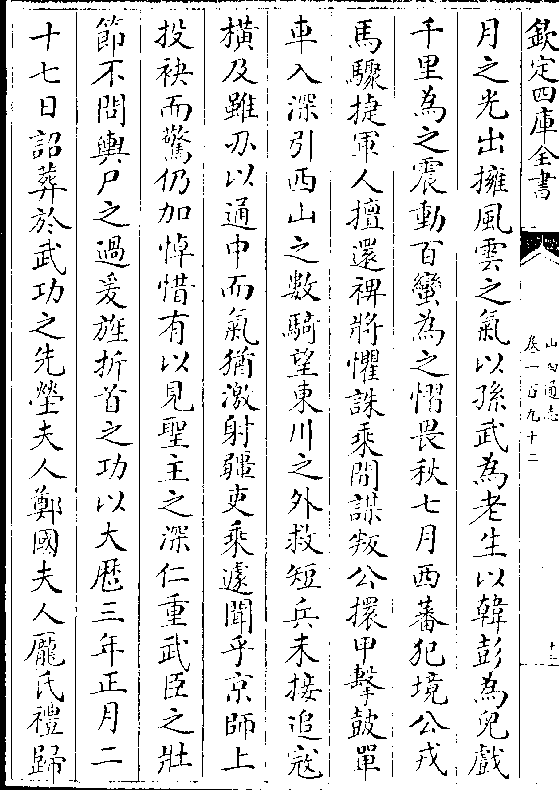 欽定四庫全書
山西通志
卷一百九十二
月之光出擁風雲之氣以孫武為老生以韓彭為兒戲
千里為之震動百蠻為之慴畏秋七月西蕃犯境公戎
馬驟捷軍人擅還裨將懼誅乘間謀叛公擐甲擊鼓單
車入深引西山之數騎望東川之外救短兵未接追寇
橫及雖刃以通中而氣猶激射疆吏乘遽聞乎京師上
投袂而驚仍加悼惜有以見聖主之深仁重武臣之壯
節不問輿尸之過爰旌折首之功以大厯三年正月二
十七日詔葬於武功之先塋夫人鄭國夫人龎氏禮歸